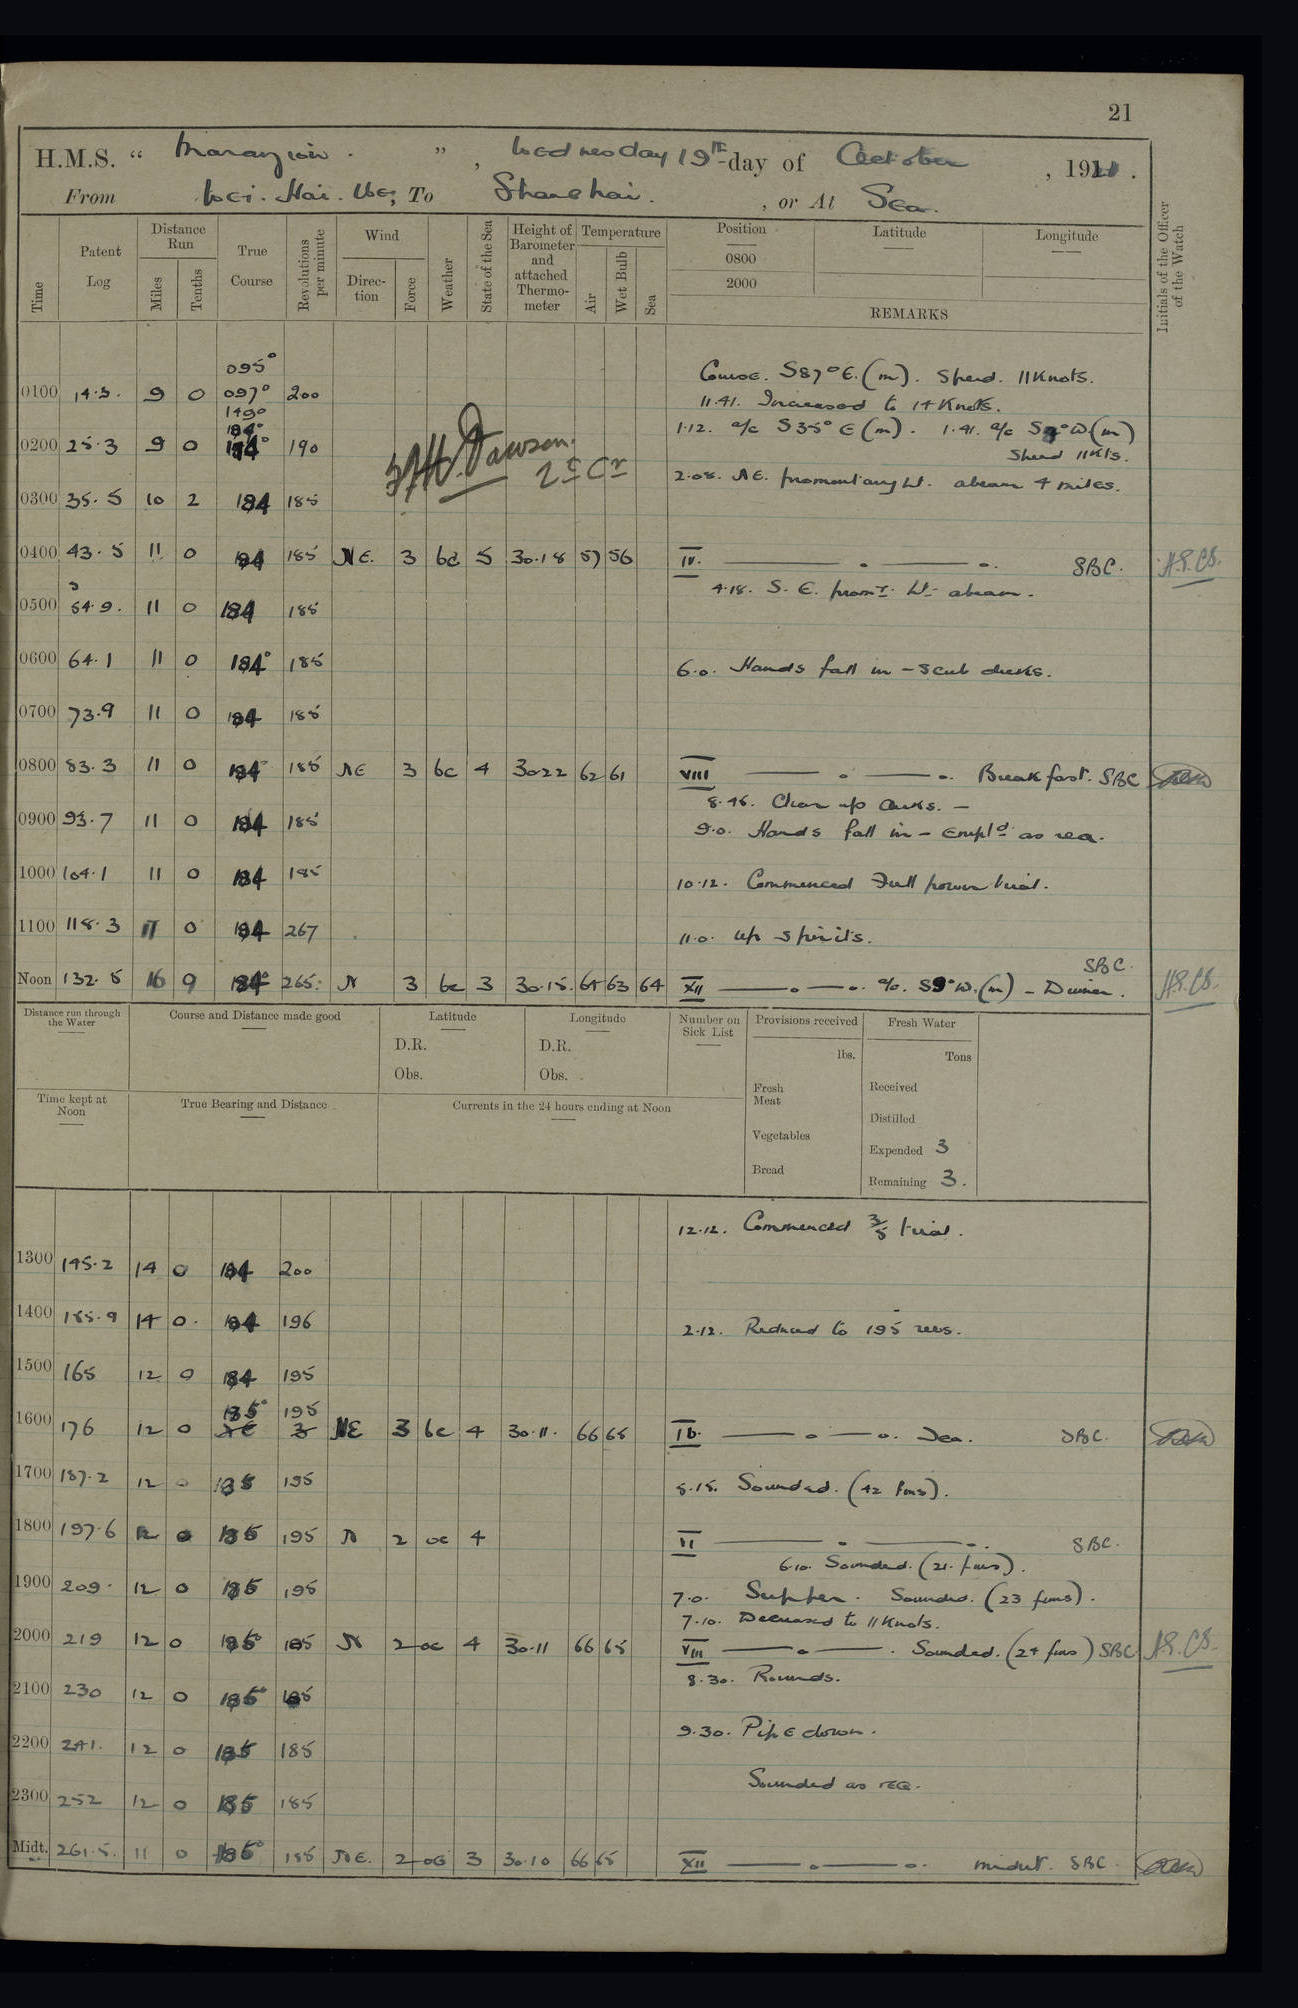 21
H.M.S. " Marazion. ", Wednesday 19th day of October, 1921.
From Wei. Hai. Wei, To Shanghai. , or At Sea.
Time Patent Log Distance Run Miles Tenths True Course Revolutions per minute Wind Direction Force Weather State of the Sea Height of Barometer and attached Thermometer Temperature Air Wet Bulb Sea Position 0800 2000 Latitude Longitude REMARKS Initials of the Officer of the Watch
095°
Course. S87°E.(m). Speed. 11 Knots.
0100 14.3. 9 0 097° 200
149°
11.41. Increased to 14 Knots.
184°
1.12. a/c S35°E(m). 1.41. a/c S9°W(m)
0200 25.3 9 0 184° 190
Speed 11 Kts.
J.H. Dawson.
2.08. N.E. promontary Lt. abeam 4 miles.
0300 35.5 10 2 184 185
0400 43.5 11 0 184 185 NE. 3 bc 5 30.18 57 56 IV. SBC. H.S.CS.
4.18. S.E. promr. Lt. abeam.
0500 54.9. 11 0 184 185
0600 64.1 11 0 184° 185 6.0. Hands fall in - scub decks.
0700 73.9 11 0 184 185
0800 83.3 11 0 184° 185 NE 3 bc 4 3022 62 61 VIII Breakfast. SBC
8.45. Clear up decks. -
0900 93.7 11 0 184 185 9.0. Hands fall in - Empld as req.
1000 104.1 11 0 184 185 10.12. Commenced Full power trial.
1100 118.3 11 0 184 267 11.0. Up spirits.
SBC.
Noon 132.5 16 9 184° 265. N 3 bc 3 30.15. 64 63 64 XII a/c. S9°W.(m) - Dinner. H.S.CS.
Distance run through the Water Course and Distance made good Latitude D.R. Obs. Longitude D.R. Obs. Number on Sick List Provisions received lbs. Fresh Water Tons
Fresh Meat Received
Time kept at Noon True Bearing and Distance Currents in the 24 hours ending at Noon
Distilled
Vegetables Expended 3
Bread Remaining 3.
12.12. Commenced 3/5 trial.
1300 145.2 14 0 184 200
1400 155.9 14 0. 184 196
2.12. Reduced to 195 revs.
1500 165 12 0 184 195
185° 195
1600 176 12 0 NE 3 NE 3 bc 4 30.11. 66 65 IV. Tea. SBC.
1700 187.2 12 0 185 195 5.15. Sounded. (42 fms).
1800 197.6 12 0 185 195 N 2 oc 4 VI SBC.
6.10. Sounded. (21. fms).
1900 209. 12 0 185 195 7.0. Supper. Sounded. (23 fms).
7.10. Decreased to 11 Knots.
2000 219 12 0 185° 185 N 2 oc 4 30.11 66 65 VIII Sounded. (24 fms) SBC H.S.CS.
8.30. Rounds.
2100 230 12 0 185° 185
9.30. Pipe down.
2200 241. 12 0 185 185
Sounded as req.
2300 252 12 0 185 185
Midt. 261.5. 11 0 185° 185 NE. 2 oc 3 30.10 66 65 XII midnt. SBC.